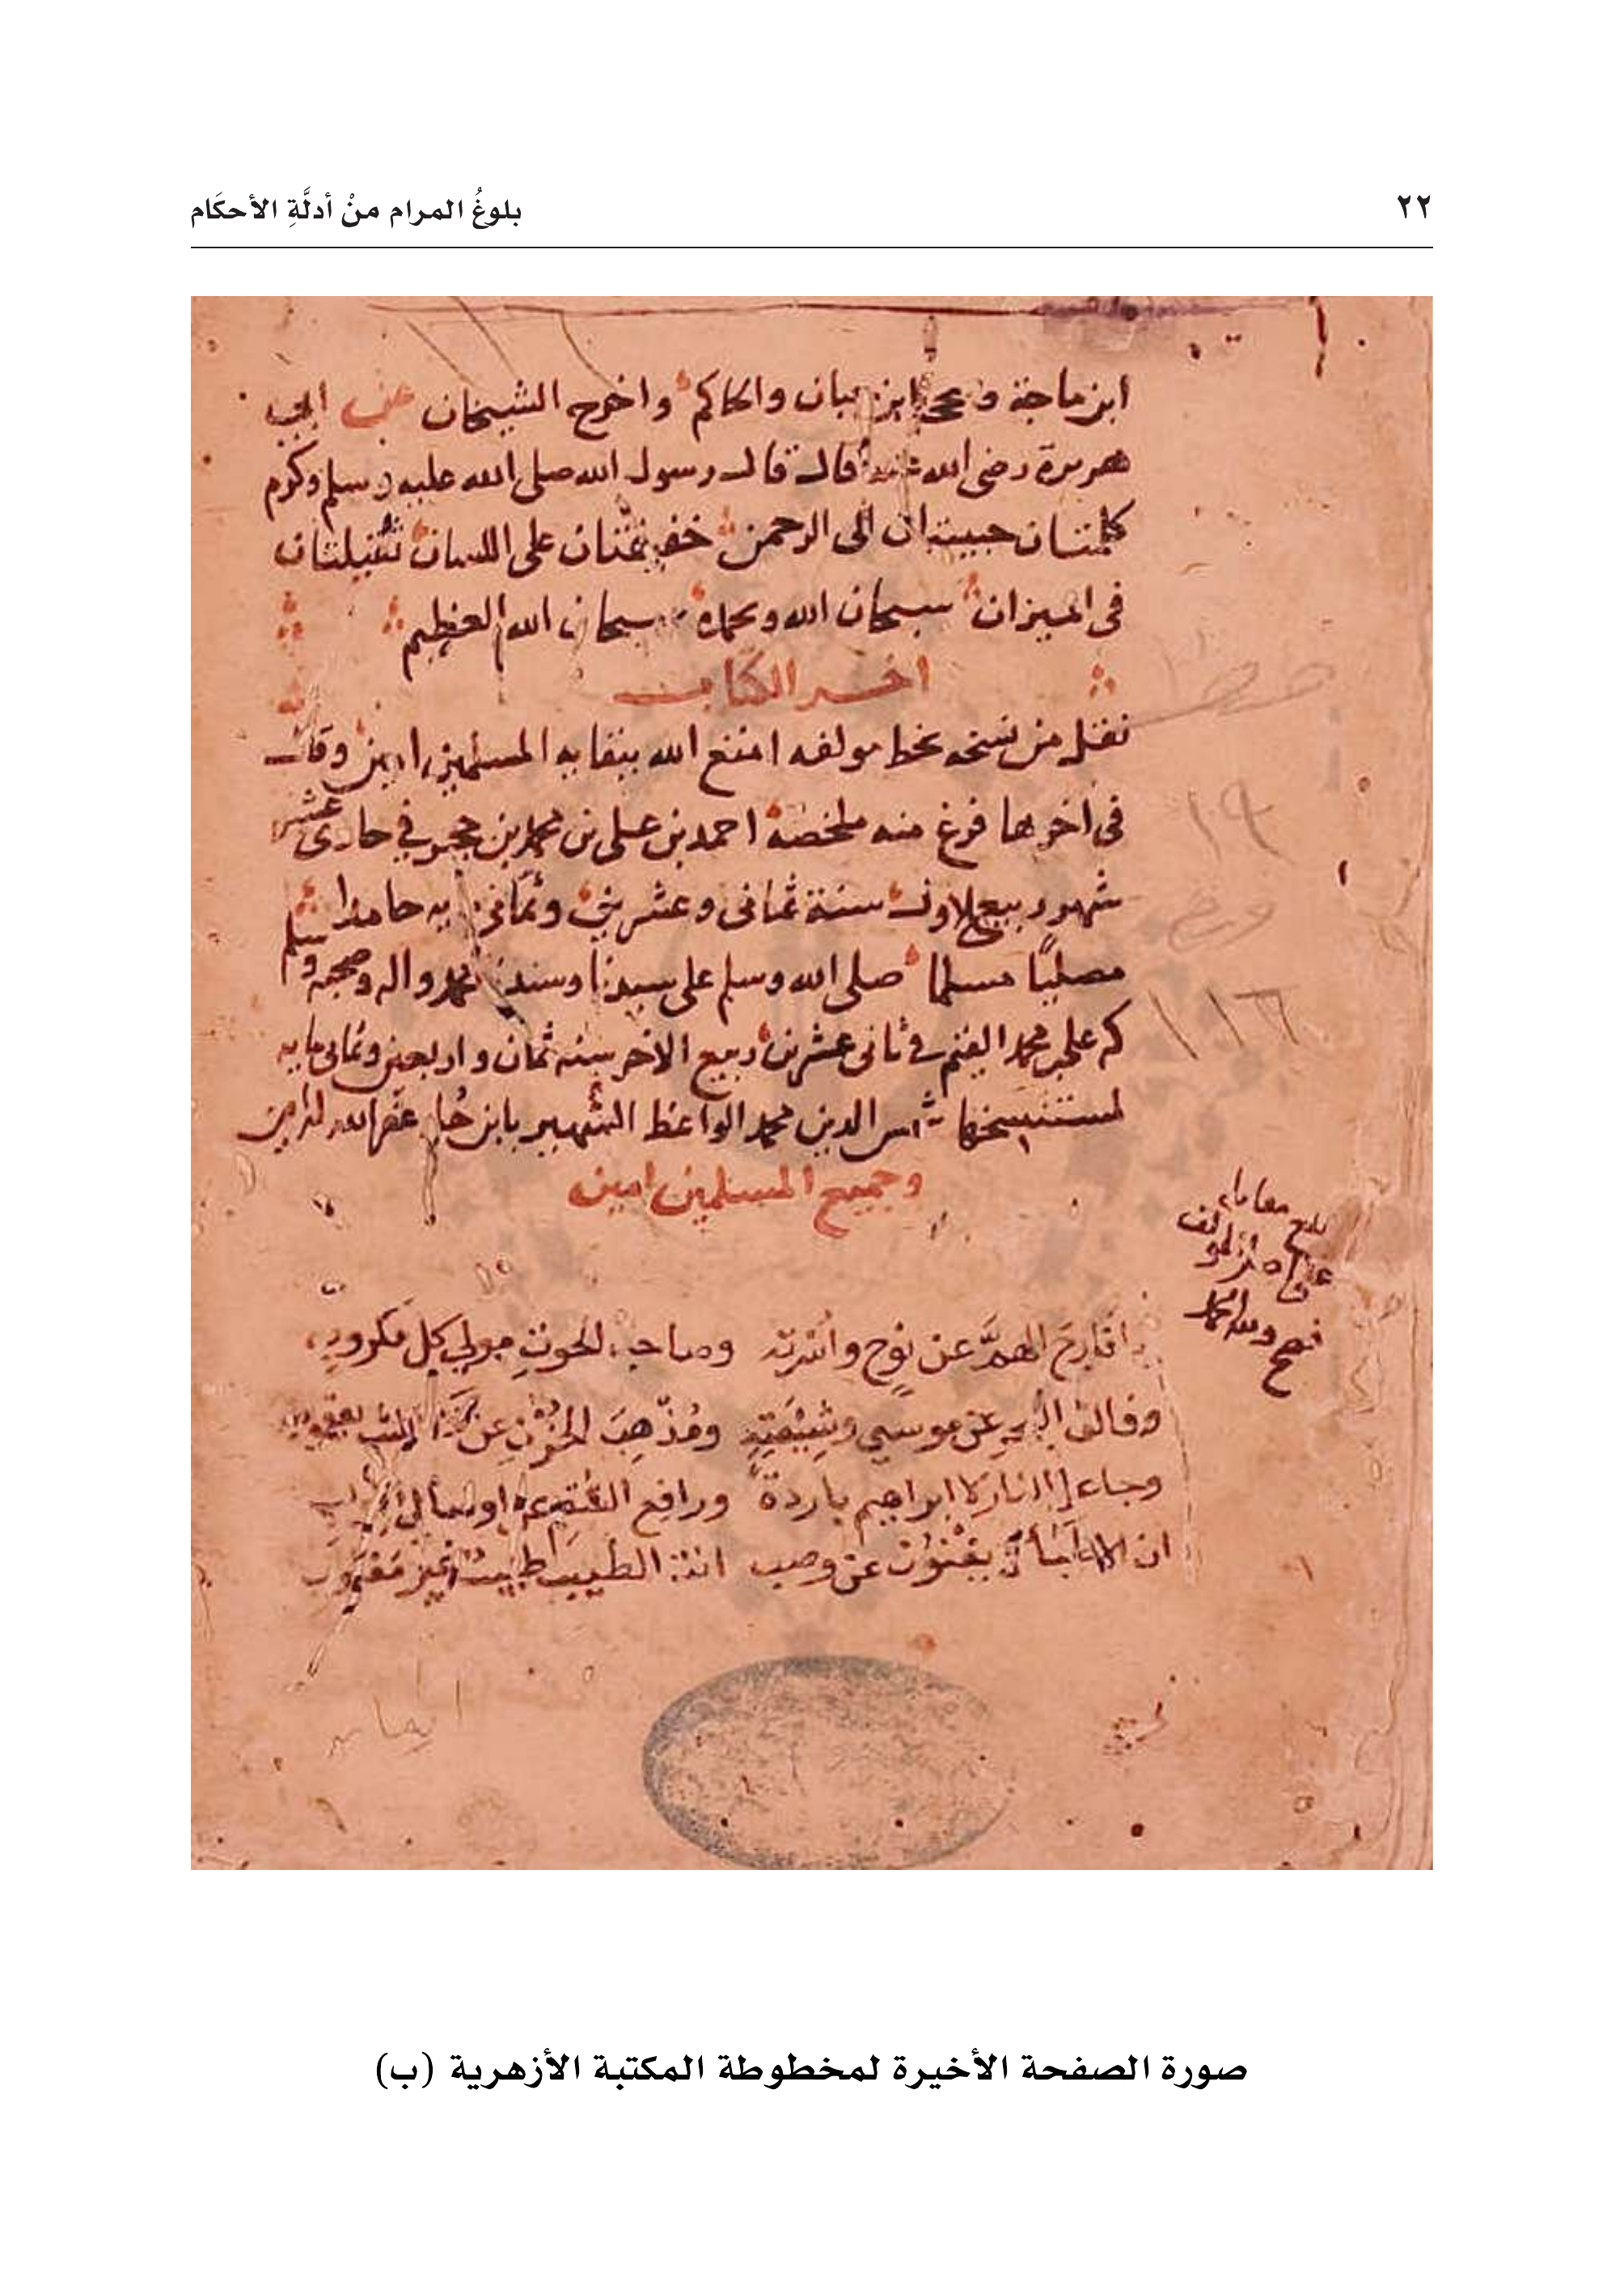 ٢٢
بلوغُ المرام منْ أدلَّةِ الأحكَام
ابن ماجة وصححه ابن حبان والحاكم واخرج الشيخان عن ابي
هريرة رضى الله عنه قال قال رسول الله صلى الله عليه وسلم وكرم
كلمتان حبيبتان الى الرحمن خفيفتان على اللسان ثقيلتان
فى الميزان سبحان الله وبحمده سبحان الله العظيم
اخر الكتاب
نقل من نسخه بخط مولفه امتع الله ببقايه المسلمين امين وقال
فى اخرها فرغ منه ملخصه احمد بن على بن محمد بن حجر في حادى عشر
شهر ربيع الاول سنة ثمانى وعشرين وثمانى ايه حامدا
مصليا مسلما صلى الله وسلم على سيدنا وسندنا محمد واله وصحبه وسلم
على محمد فى ثانى عشرين ربيع الاخر سنه ثمان واربعين وثمانى مايه
لمستنسخها شمس الدين محمد الواعظ الشهير بابن غفر الله
وجميع المسلمين امين
بلغ مقابله
على اصل المؤلف
فصح ولله الحمد
يا فارج الهمَّ عن نوح واسرته وصاحب الحوت مولي كل مكروب
وفالق البحر عن موسي وشيعته ومذهب الحزن عن يعقوب
وجاعل النار لابراهيم باردة ورافع السقم عن اوصال ايوب
ان الاطباء لا يغنون عن وصب انت الطبيب طبيب غير مغلوب
صورة الصفحة الأخيرة لمخطوطة المكتبة الأزهرية (ب)